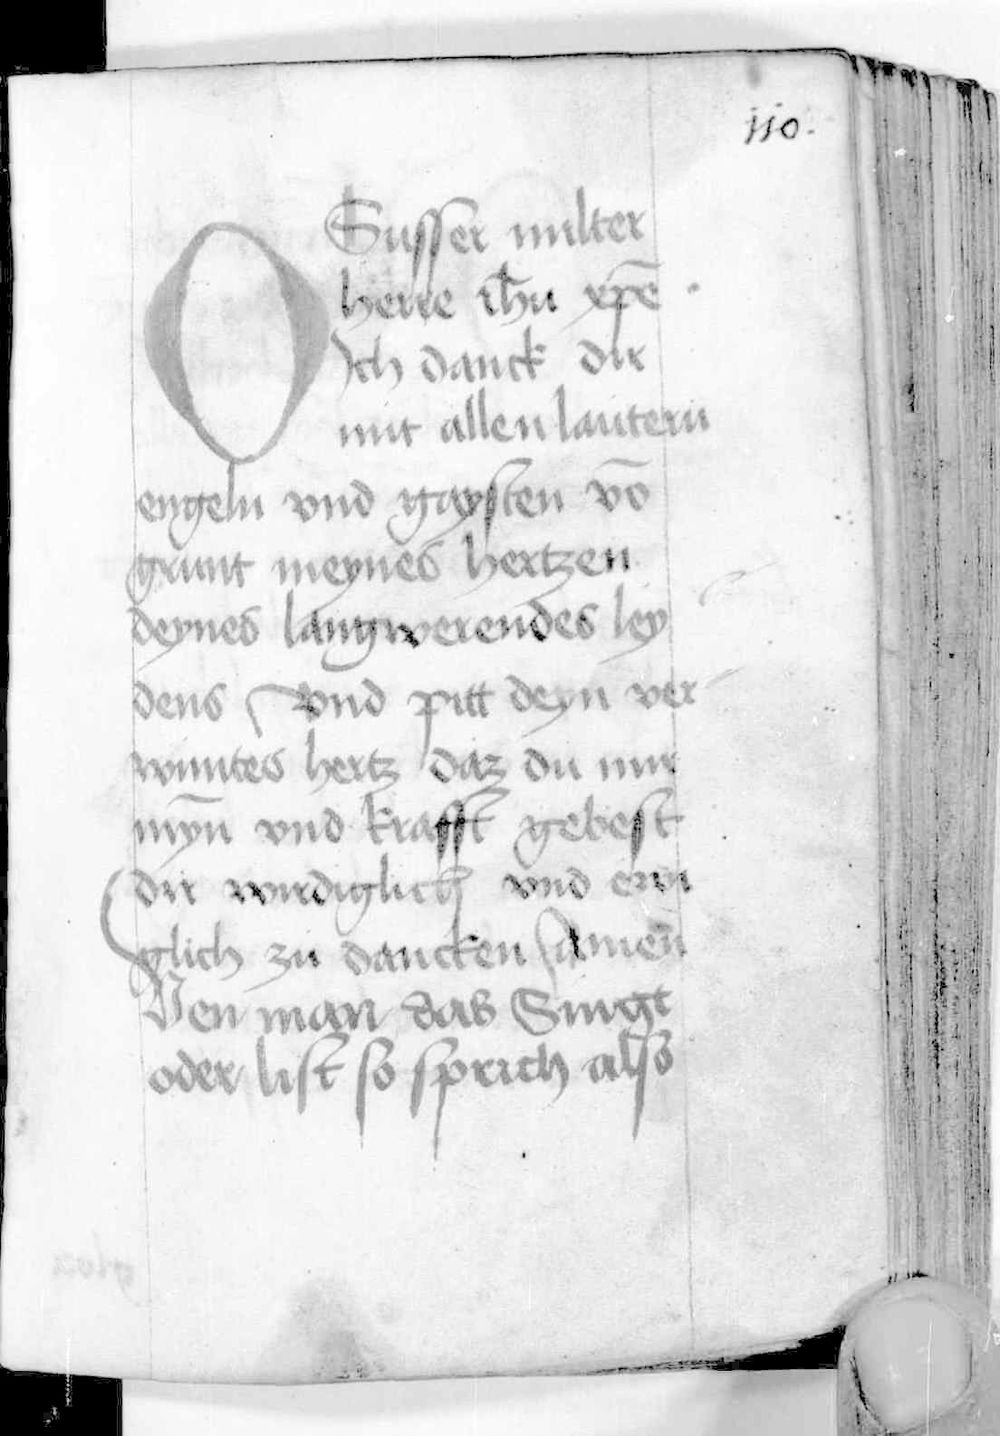 110.
O Susser milter
herre ihu xpē .
Ich danck dir
mit allen lautern
engeln vnd gaysten vō
grunt meynes hertzen
deynes langwerendes ley
dens Vnd pitt deyn ver
wuntes hertz daz du mir
myn̄ vnd krafft gebest
dir wirdiglich vnd ewi
glich zu dancken Amen
Wen man das Singt
oder list so sprich also